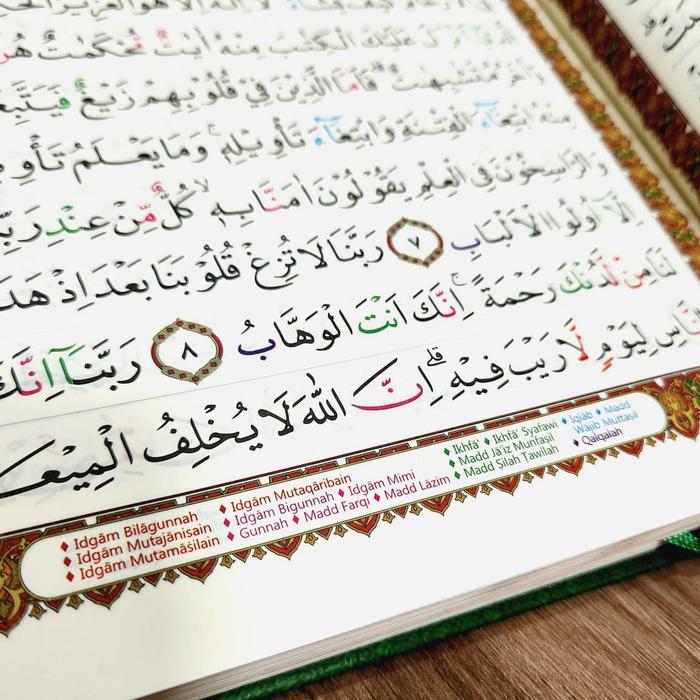 لَ عَلَيْكَ الْكِتٰبَ مِنْهُ اٰيٰتٌ مُّحْكَمٰتٌ
وَاُخَرُ مُتَشٰبِهٰتٌ ۗ فَاَمَّا الَّذِيْنَ فِيْ قُلُوْبِهِمْ زَيْغٌ فَيَتَّبِعُ
مِنْهُ ابْتِغَاۤءَ الْفِتْنَةِ وَابْتِغَاۤءَ تَأْوِيْلِهٖۚ وَمَا يَعْلَمُ تَأْوِ
وَالرَّاسِخُوْنَ فِى الْعِلْمِ يَقُوْلُوْنَ اٰمَنَّا بِهٖۙ كُلٌّ مِّنْ عِنْدِ رَبِّ
اِلَّآ اُولُوا الْاَلْبَابِ ٧ رَبَّنَا لَا تُزِغْ قُلُوْبَنَا بَعْدَ اِذْ هَدَ
لَنَا مِنْ لَّدُنْكَ رَحْمَةً ۚاِنَّكَ اَنْتَ الْوَهَّابُ ٨ رَبَّنَآ اِنَّكَ
نَّاسِ لِيَوْمٍ لَّا رَيْبَ فِيْهِ ۗاِنَّ اللّٰهَ لَا يُخْلِفُ الْمِيْعَ
♦ Idgām Bilāgunnah
♦ Idgām Mutajānisain
♦ Idgām Mutamāṡilain
♦ Idgām Mutaqāribain
♦ Idgām Bigunnah ♦ Idgām Mimi
♦ Gunnah ♦ Madd Farqi ♦ Madd Lāzim
♦ Ikhfā' ♦ Ikhfā' Syafawi
♦ Madd Jā'iz Munfaṣil
♦ Madd Ṣilah Ṭawilah
♦ Iqlāb ♦ Madd
Wājib Muttaṣil
♦ Qalqalah